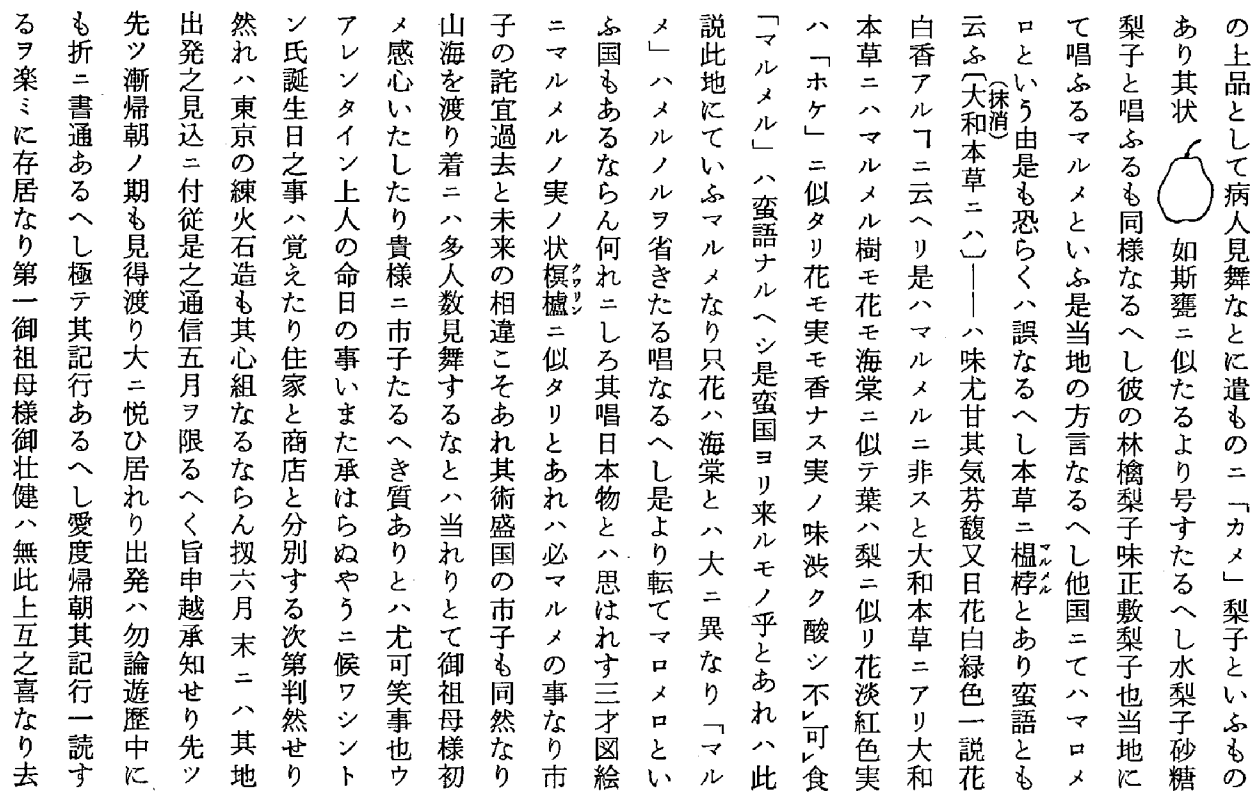 の上品として病人見舞なとに遣ものニ「カメ」梨子といふもの
あり其状 如斯甕ニ似たるより号すたるへし水梨子砂糖
梨子と唱ふるも同様なるへし彼の林檎梨子味正敷梨子也当地に
て唱ふるマルメといふ是当地の方言なるへし他国ニてハマロメ
ロという由是も恐らくハ誤なるへし本草ニ榲桲とあり蛮語とも
マルメル
云ふ〔大和本草ニハ〕――ハ味尤甘其気芬馥又日花白緑色一説花
(抹消)
白香アルヿニ云ヘリ是ハマルメルニ非スと大和本草ニアリ大和
本草ニハマルメル樹モ花モ海棠ニ似テ葉ハ梨ニ似リ花淡紅色実
ハ「ホケ」ニ似タリ花モ実モ香ナス実ノ味渋ク酸シ不㆑可㆑食
「マルメル」ハ蛮語ナルヘシ是蛮国ヨリ来ルモノ乎とあれハ此
説此地にていふマルメなり只花ハ海棠とハ大ニ異なり「マル
メ」ハメルノルヲ省きたる唱なるへし是より転てマロメロとい
ふ国もあるならん何れニしろ其唱日本物とハ思はれす三才図絵
ニマルメルノ実ノ状榠櫨ニ似タリとあれハ必マルメの事なり市
クワリン
子の詫宜過去と未来の相違こそあれ其術盛国の市子も同然なり
山海を渡り着ニハ多人数見舞するなとハ当れりとて御祖母様初
メ感心いたしたり貴様ニ市子たるへき質ありとハ尤可笑事也ウ
アレンタイン上人の命日の事いまた承はらぬやうニ候ワシント
ン氏誕生日之事ハ覚えたり住家と商店と分別する次第判然せり
然れハ東京の練火石造も其心組なるならん扨六月末ニハ其地
出発之見込ニ付従是之通信五月ヲ限るへく旨申越承知せり先ツ
先ツ漸帰朝ノ期も見得渡り大ニ悦ひ居れり出発ハ勿論遊歴中に
も折ニ書通あるへし極テ其記行あるへし愛度帰朝其記行一読す
るヲ楽ミに存居なり第一御祖母様御壮健ハ無此上互之喜なり去